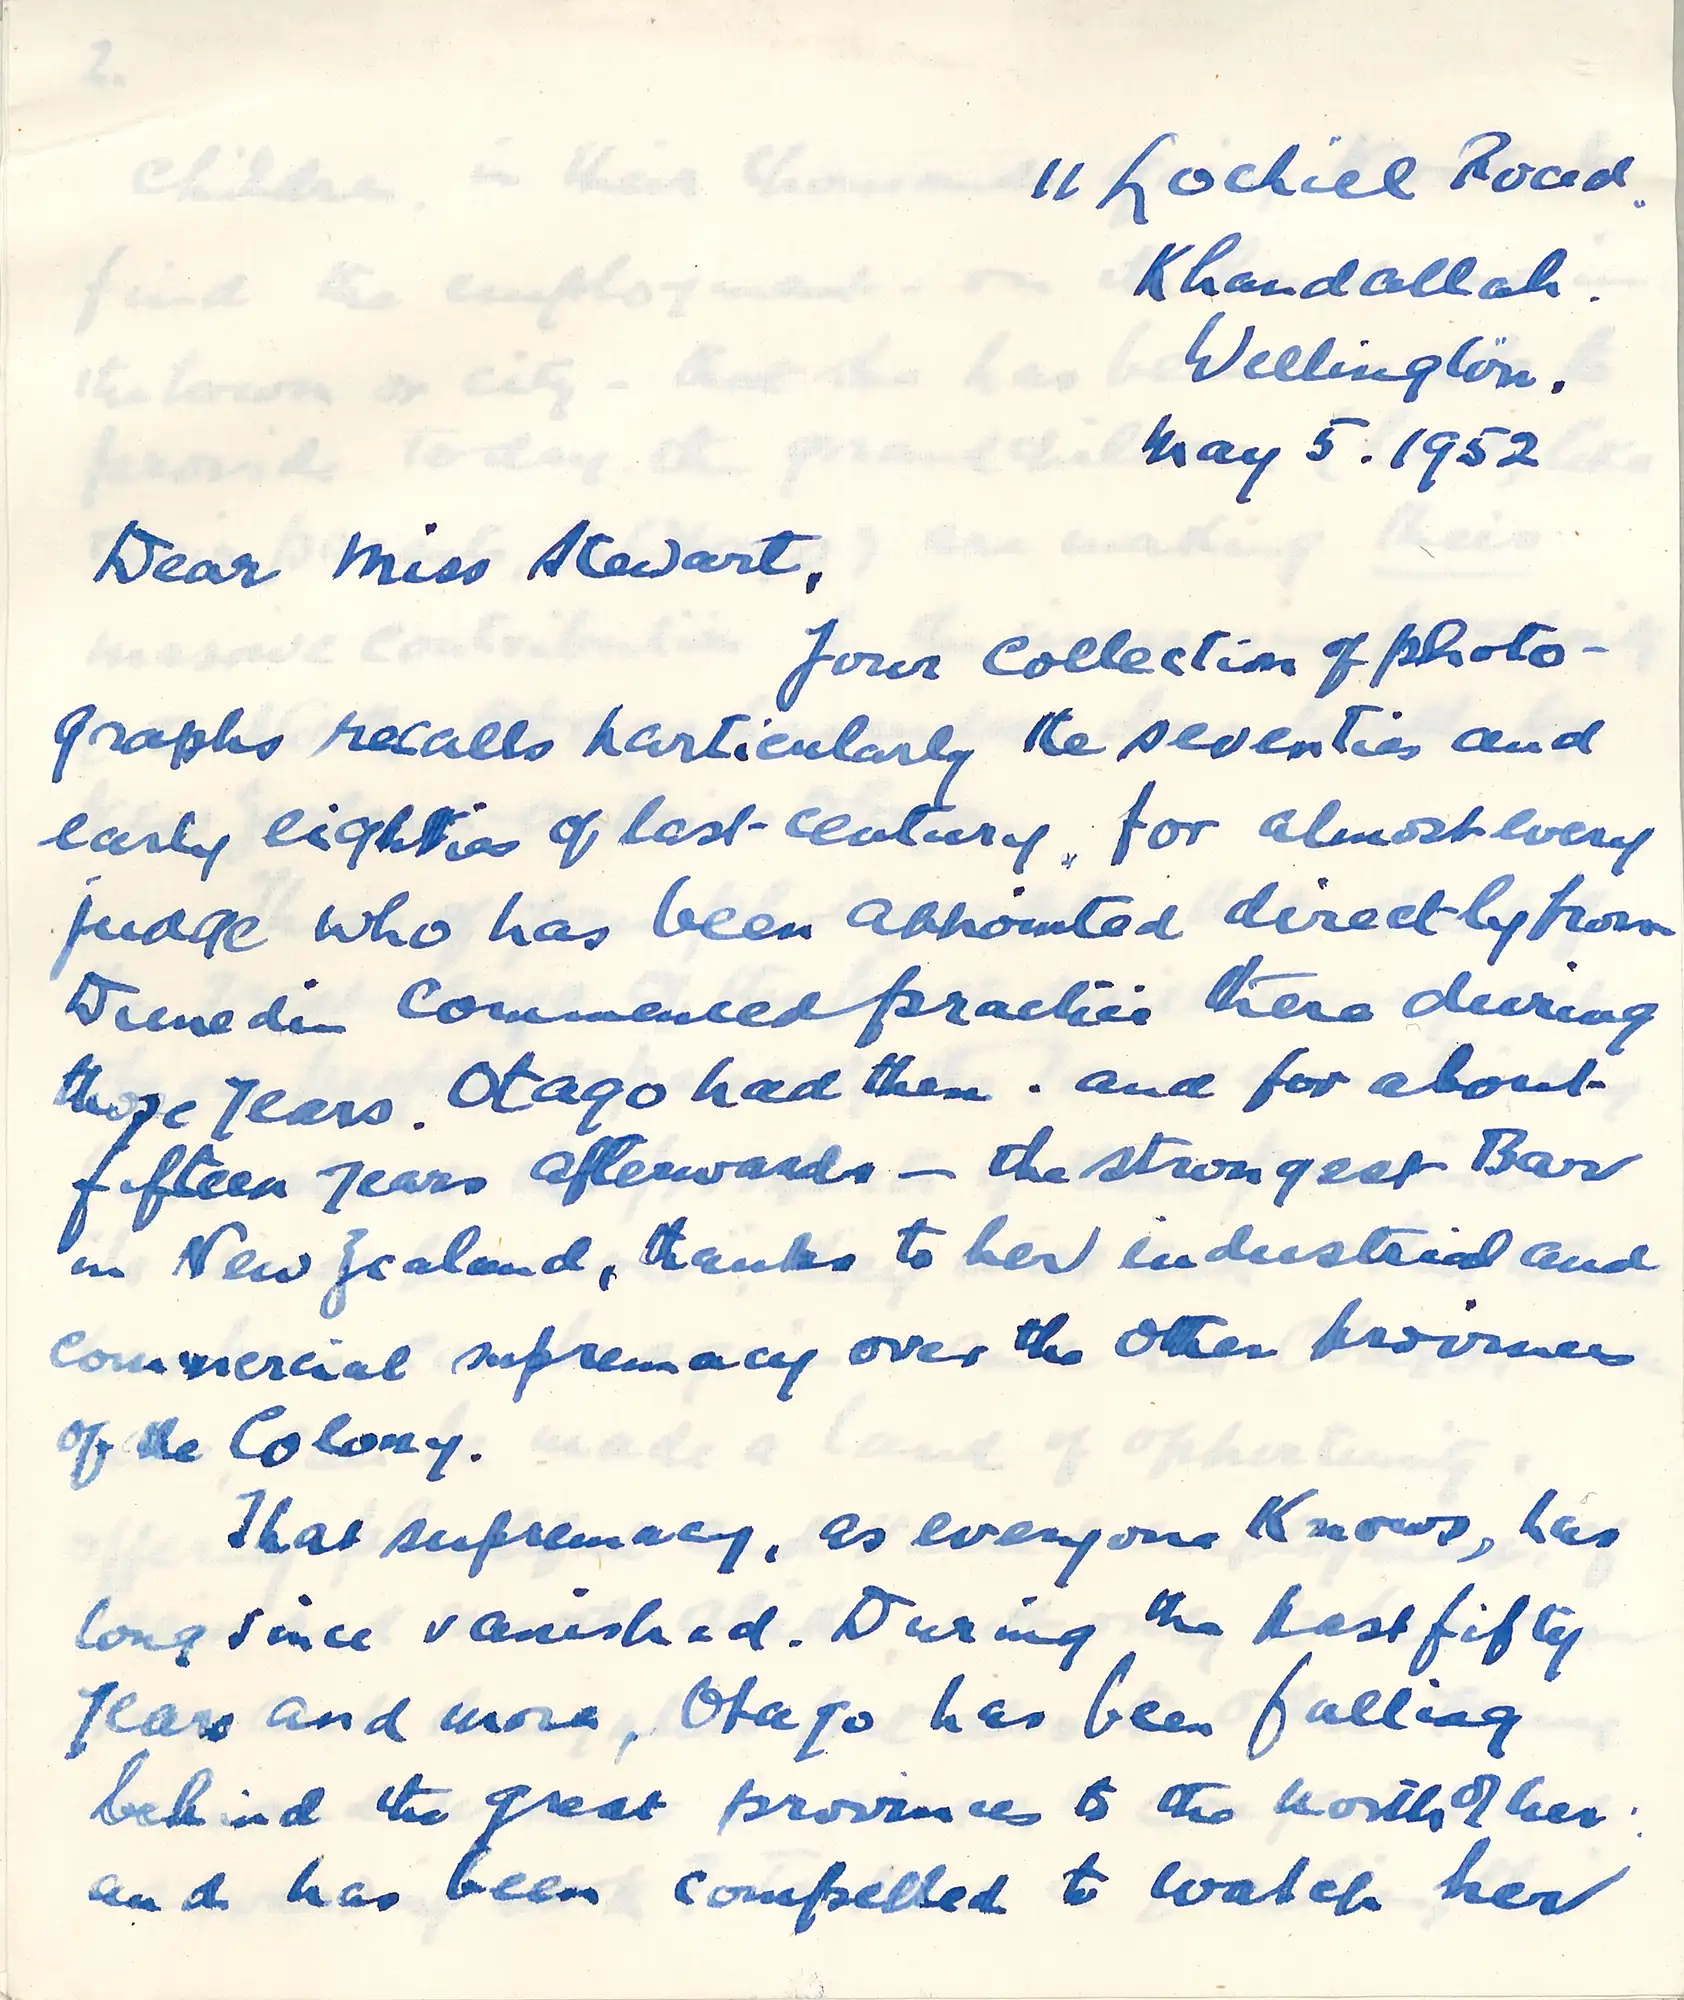 11 Lochiel Road.
Khandallah.
Wellington.
May 5. 1952
Dear Miss Stewart,
Your collection of photo-
graphs recalls particularly the seventies and
early eighties of last century, for almost every
judge who has been appointed directly from
Dunedin commenced practice there during
those years. Otago had then - and for about
fifteen years afterwards - the strongest Bar
in New Zealand, thanks to her industrial and
commercial supremacy over the other provinces
of the Colony.
That supremacy, as everyone knows, has
long since vanished. During the past fifty
years and more, Otago has been falling
behind the great provinces to the north of her:
and has been compelled to watch her